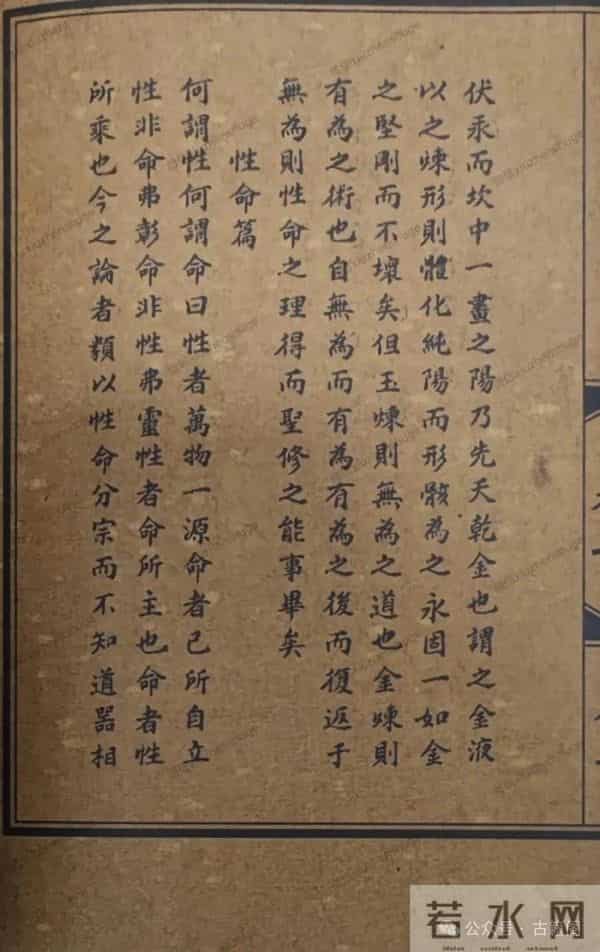 伏汞而坎中一畫之陽乃先天乾金也謂之金液
以之煉形則體化純陽而形骸為之永固一如金
之堅剛而不壞矣但玉煉則無為之道也金煉則
有為之術也自無為而有為有為之後而復返于
無為則性命之理得而聖修之能事畢矣
性命篇
何謂性何謂命曰性者萬物一源命者己所自立
性非命弗彰命非性弗靈性者命所主也命者性
所乘也今之論者類以性命分宗而不知道器相
若水网
公众号·古